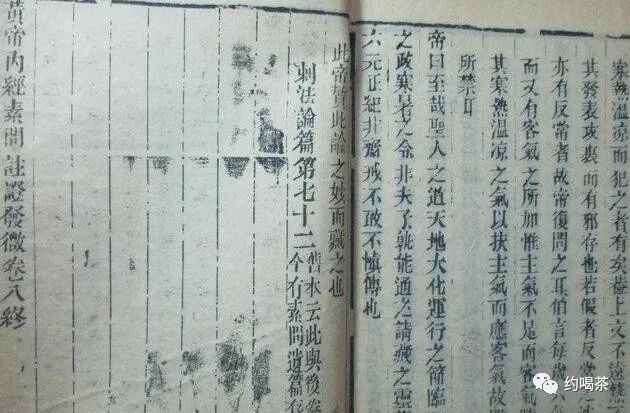 寒熱溫凉而犯之者有矣葢上文不遠熱
其發表攻裏而有邪存也若假者反
亦有反常者故帝復問之耳伯言每歲
而又有客氣之所加惟主氣不足而客
其寒熱溫凉之氣以扶主氣而應客氣故
所禁耳
帝曰至哉聖人之道天地大化運行之節臨
之政寒暑之令非夫子孰能通之請藏之靈
六元正紀非齋戒不敢示慎傳也
此帝贊此論之妙而藏之也
刺法論篇第七十二
舊本云此與後卷
今有素問遺篇存
黃帝內經素問註證發微卷八終
约喝茶